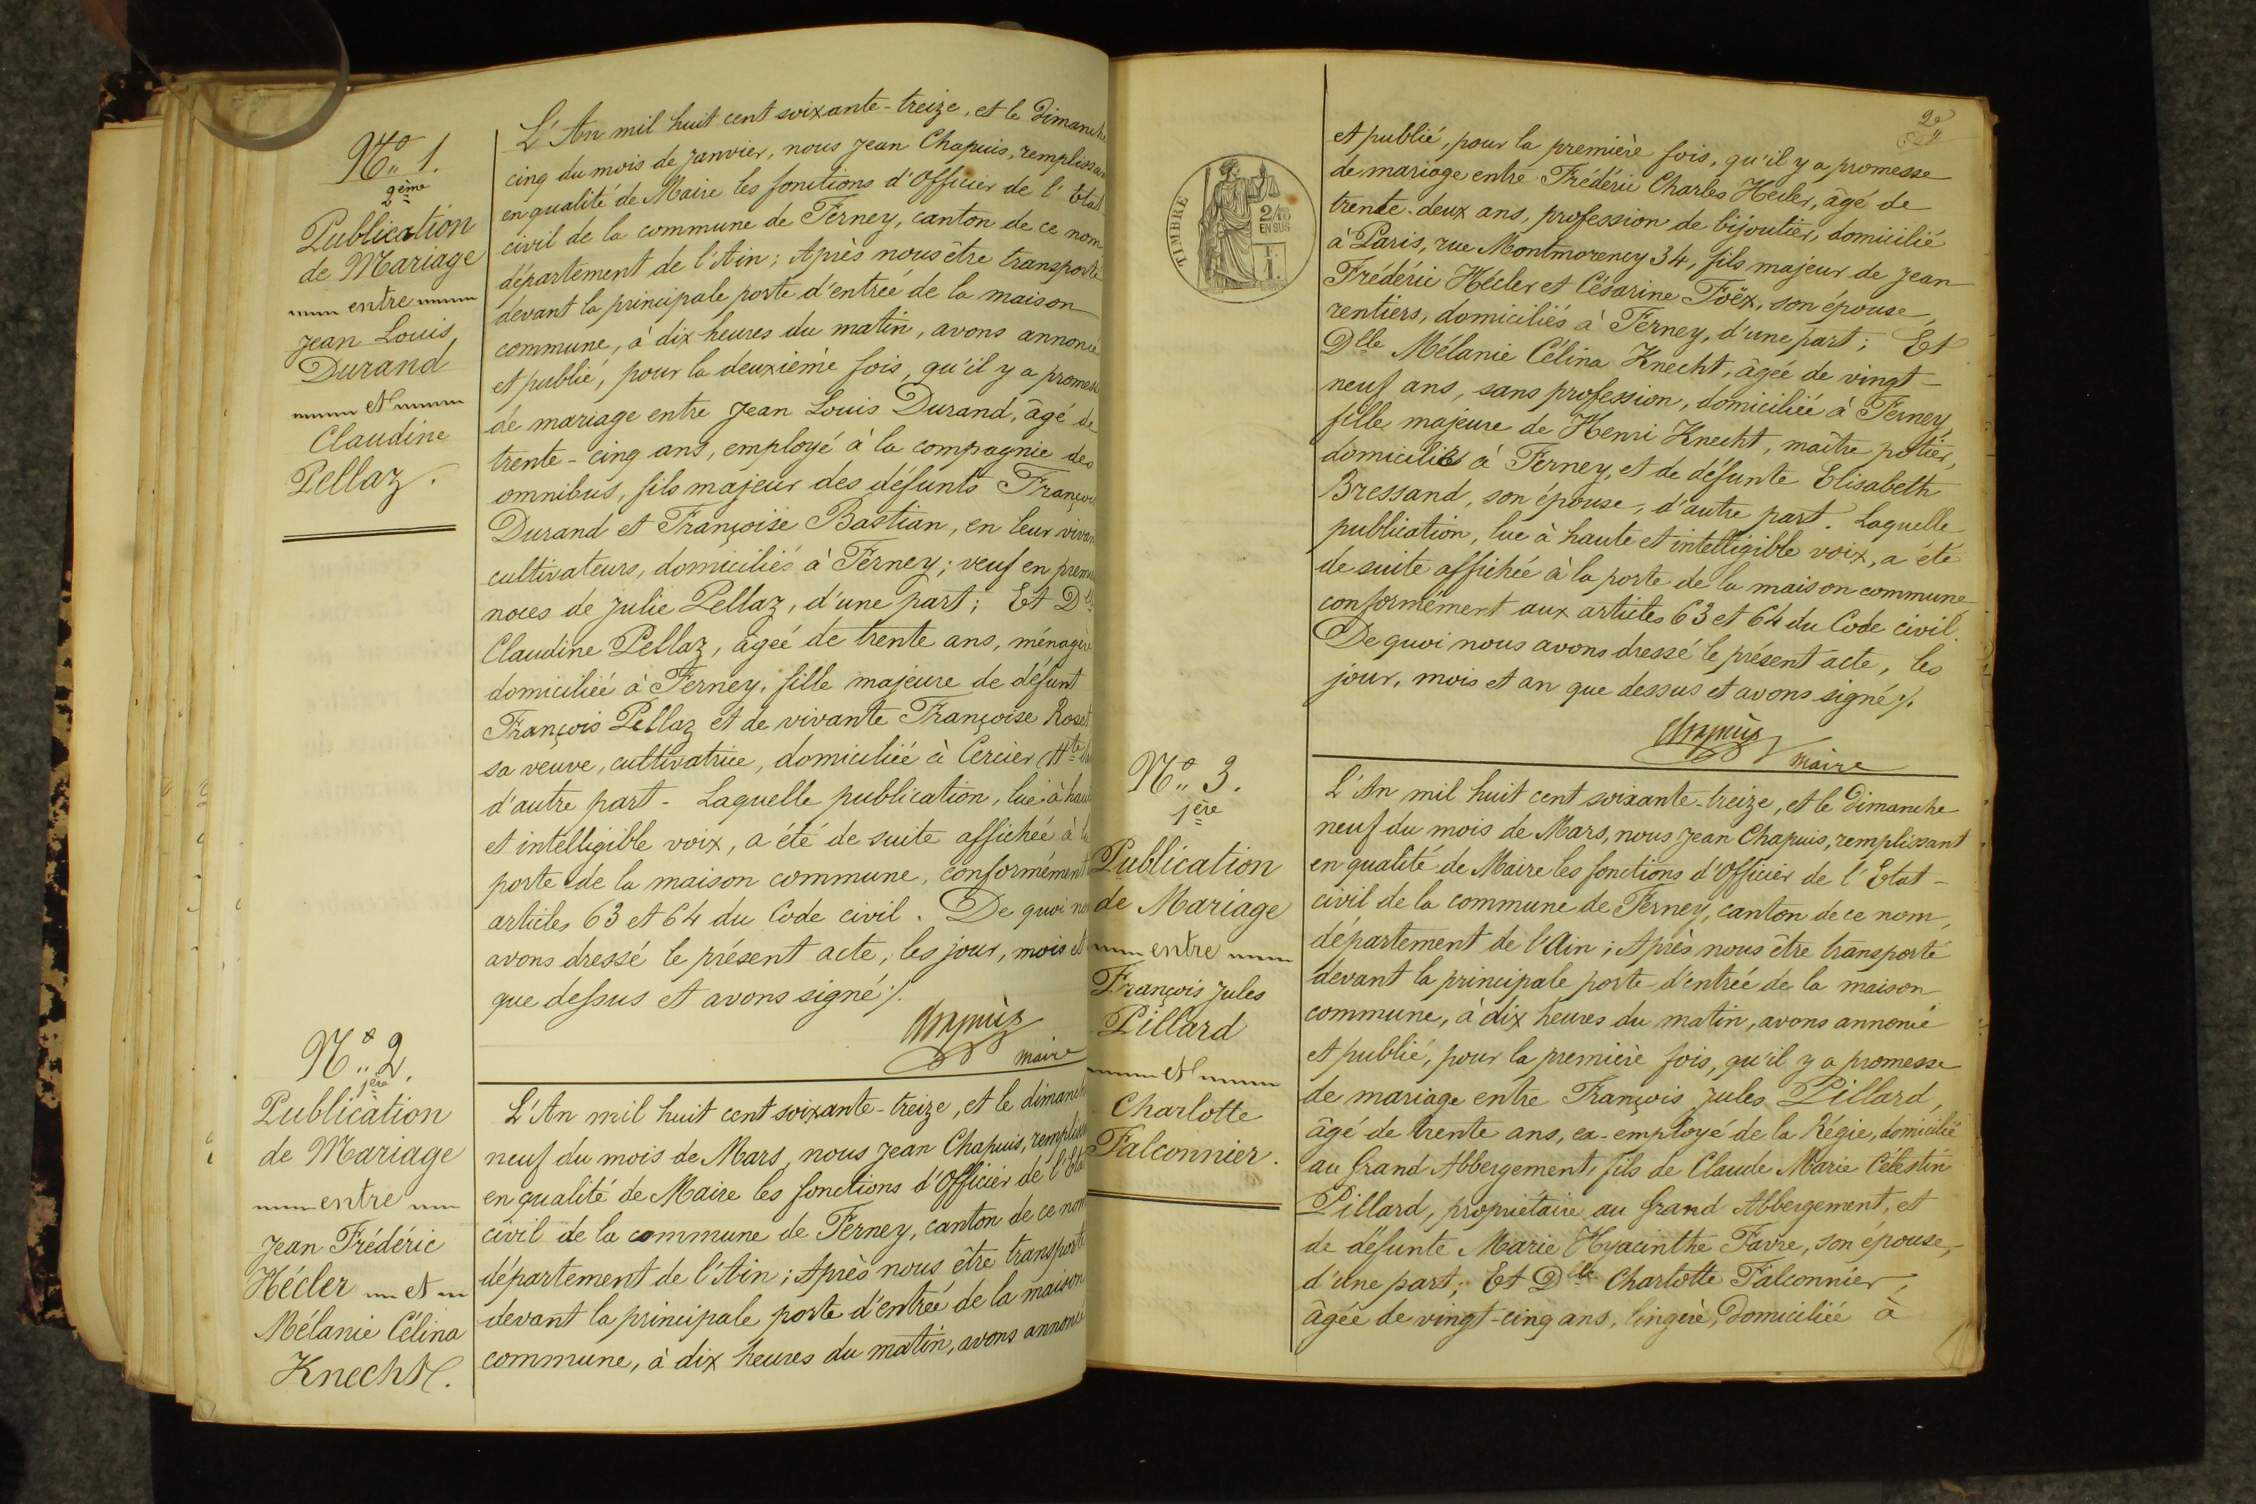 Nº 1.
2ème
Publication
de Mariage
entre
Jean Louis
Durand
et
Claudine
Pellaz.
L'An mil huit cent soixante-treize, et le Dimanche
cinq du mois de Janvier, nous Jean Chapuis, remplissan
en qualité de Maire les fonctions d'Officier de l'Etat
civil de la commune de Ferney, canton de ce nom
département de l'Ain; Après nous être transporté
devant la principale porte d'entrée de la maison
commune, à dix heures du matin, avons annoncé
et publié, pour la deuxième fois, qu'il y a promesse
de mariage entre Jean Louis Durand, âgé de
trente-cinq ans, employé à la compagnie des
omnibus, fils majeur des défunts François
Durand et Françoise Bastian, en leur vivan
cultivateurs, domiciliés à Ferney; veuf en prem
noces de Julie Pellaz, d'une part; Et Dlle
Claudine Pellaz, âgée de trente ans, ménagère
domiciliée à Ferney, fille majeure de défunt
François Pellaz et de vivante Françoise Roset
sa veuve, cultivatrice, domiciliée à Cercier (Hte
d'autre part. Laquelle publication, lue à hau
et intelligible voix, a été de suite affichée à la
porte de la maison commune, conformément
articles 63 et 64 du Code civil. De quoi no
avons dressé le présent acte, les jour, mois et
que dessus et avons signé ./.
Chapuis
maire
Nº 2.
1ère
Publication
de Mariage
entre
Jean Frédéric
Hécler et
Mélanie Célina
Knecht.
L'An mil huit cent soixante-treize, et le dimanch
neuf du mois de Mars, nous Jean Chapuis, remplissan
en qualité de Maire les fonctions d'Officier de l'Eta
civil de la commune de Ferney, canton de ce nom
département de l'Ain; Après nous être transporté
devant la principale porte d'entrée de la maison
commune, à dix heures du matin, avons annoncé
2e
TIMBRE
2/10
EN SUS
et publié, pour la première fois, qu'il y a promesse
de mariage entre Frédéric Charles Hécler, âgé de
trente-deux ans, profession de bijoutier, domicilié
à Paris, rue Montmorency 34, fils majeur de Jean
Frédéric Hécler et Césarine Foëx, son épouse,
rentiers, domiciliés à Ferney, d'une part; Et
Dlle Mélanie Célina Knecht, âgée de vingt-
neuf ans, sans profession, domiciliée à Ferney,
fille majeure de Henri Knecht, maître potier,
domicilié à Ferney, et de défunte Elisabeth
Bressand, son épouse, d'autre part. Laquelle
publication, lue à haute et intelligible voix, a été
de suite affichée à la porte de la maison commune
conformément aux articles 63 et 64 du Code civil.
De quoi nous avons dressé le présent acte, les
jour, mois et an que dessus et avons signé ./.
Chapuis
maire
Nº 3.
1ère
Publication
de Mariage
entre
François Jules
Pillard
et
Charlotte
Falconnier.
L'An mil huit cent soixante-treize, et le Dimanche
neuf du mois de Mars, nous Jean Chapuis, remplissant
en qualité de Maire les fonctions d'Officier de l'Etat-
civil de la commune de Ferney, canton de ce nom,
département de l'Ain; Après nous être transporté
devant la principale porte d'entrée de la maison
commune, à dix heures du matin, avons annoncé
et publié, pour la première fois, qu'il y a promesse
de mariage entre François Jules Pillard,
âgé de trente ans, ex-employé de la Régie, domicilié
au Grand Abbergement, fils de Claude Marie Célestin
Pillard, propriétaire au Grand Abbergement, et
de défunte Marie Hyacinthe Favre, son épouse,
d'une part; Et Dlle Charlotte Falconnier,
âgée de vingt-cinq ans, lingère, Domiciliée à